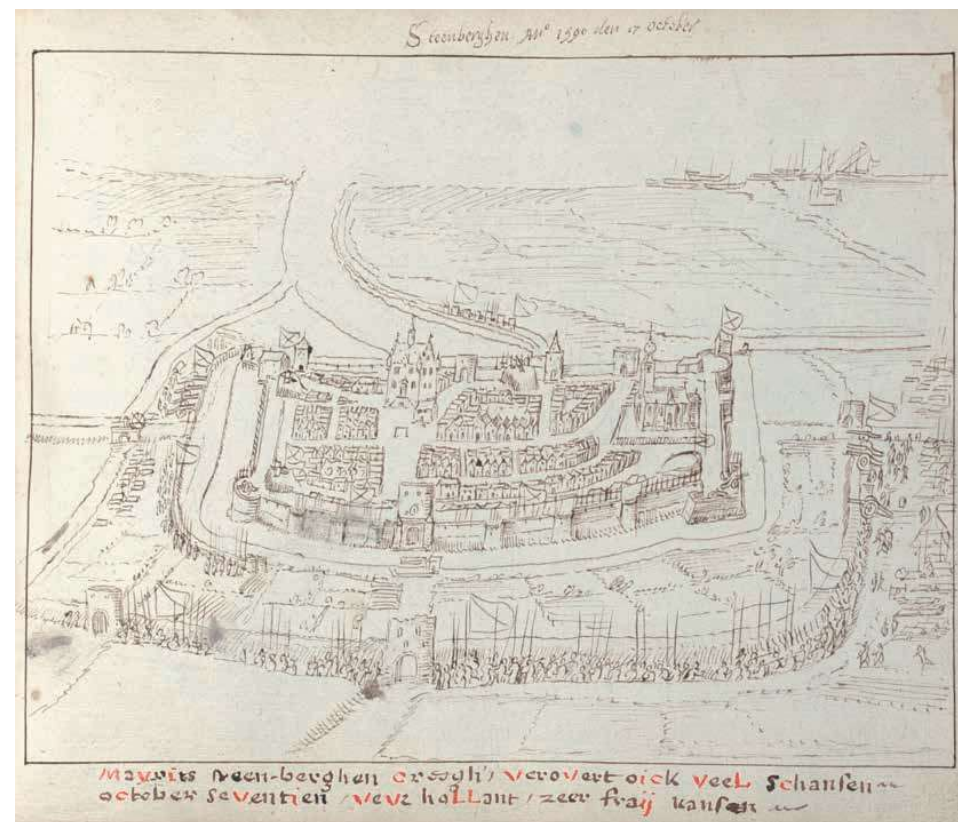 Steenberghen Anº 1590 den 17 october
Mavrits steen-berghen creegh, verovert oick veel schansen
october seventien, veur hollant, zeer fraij kansen